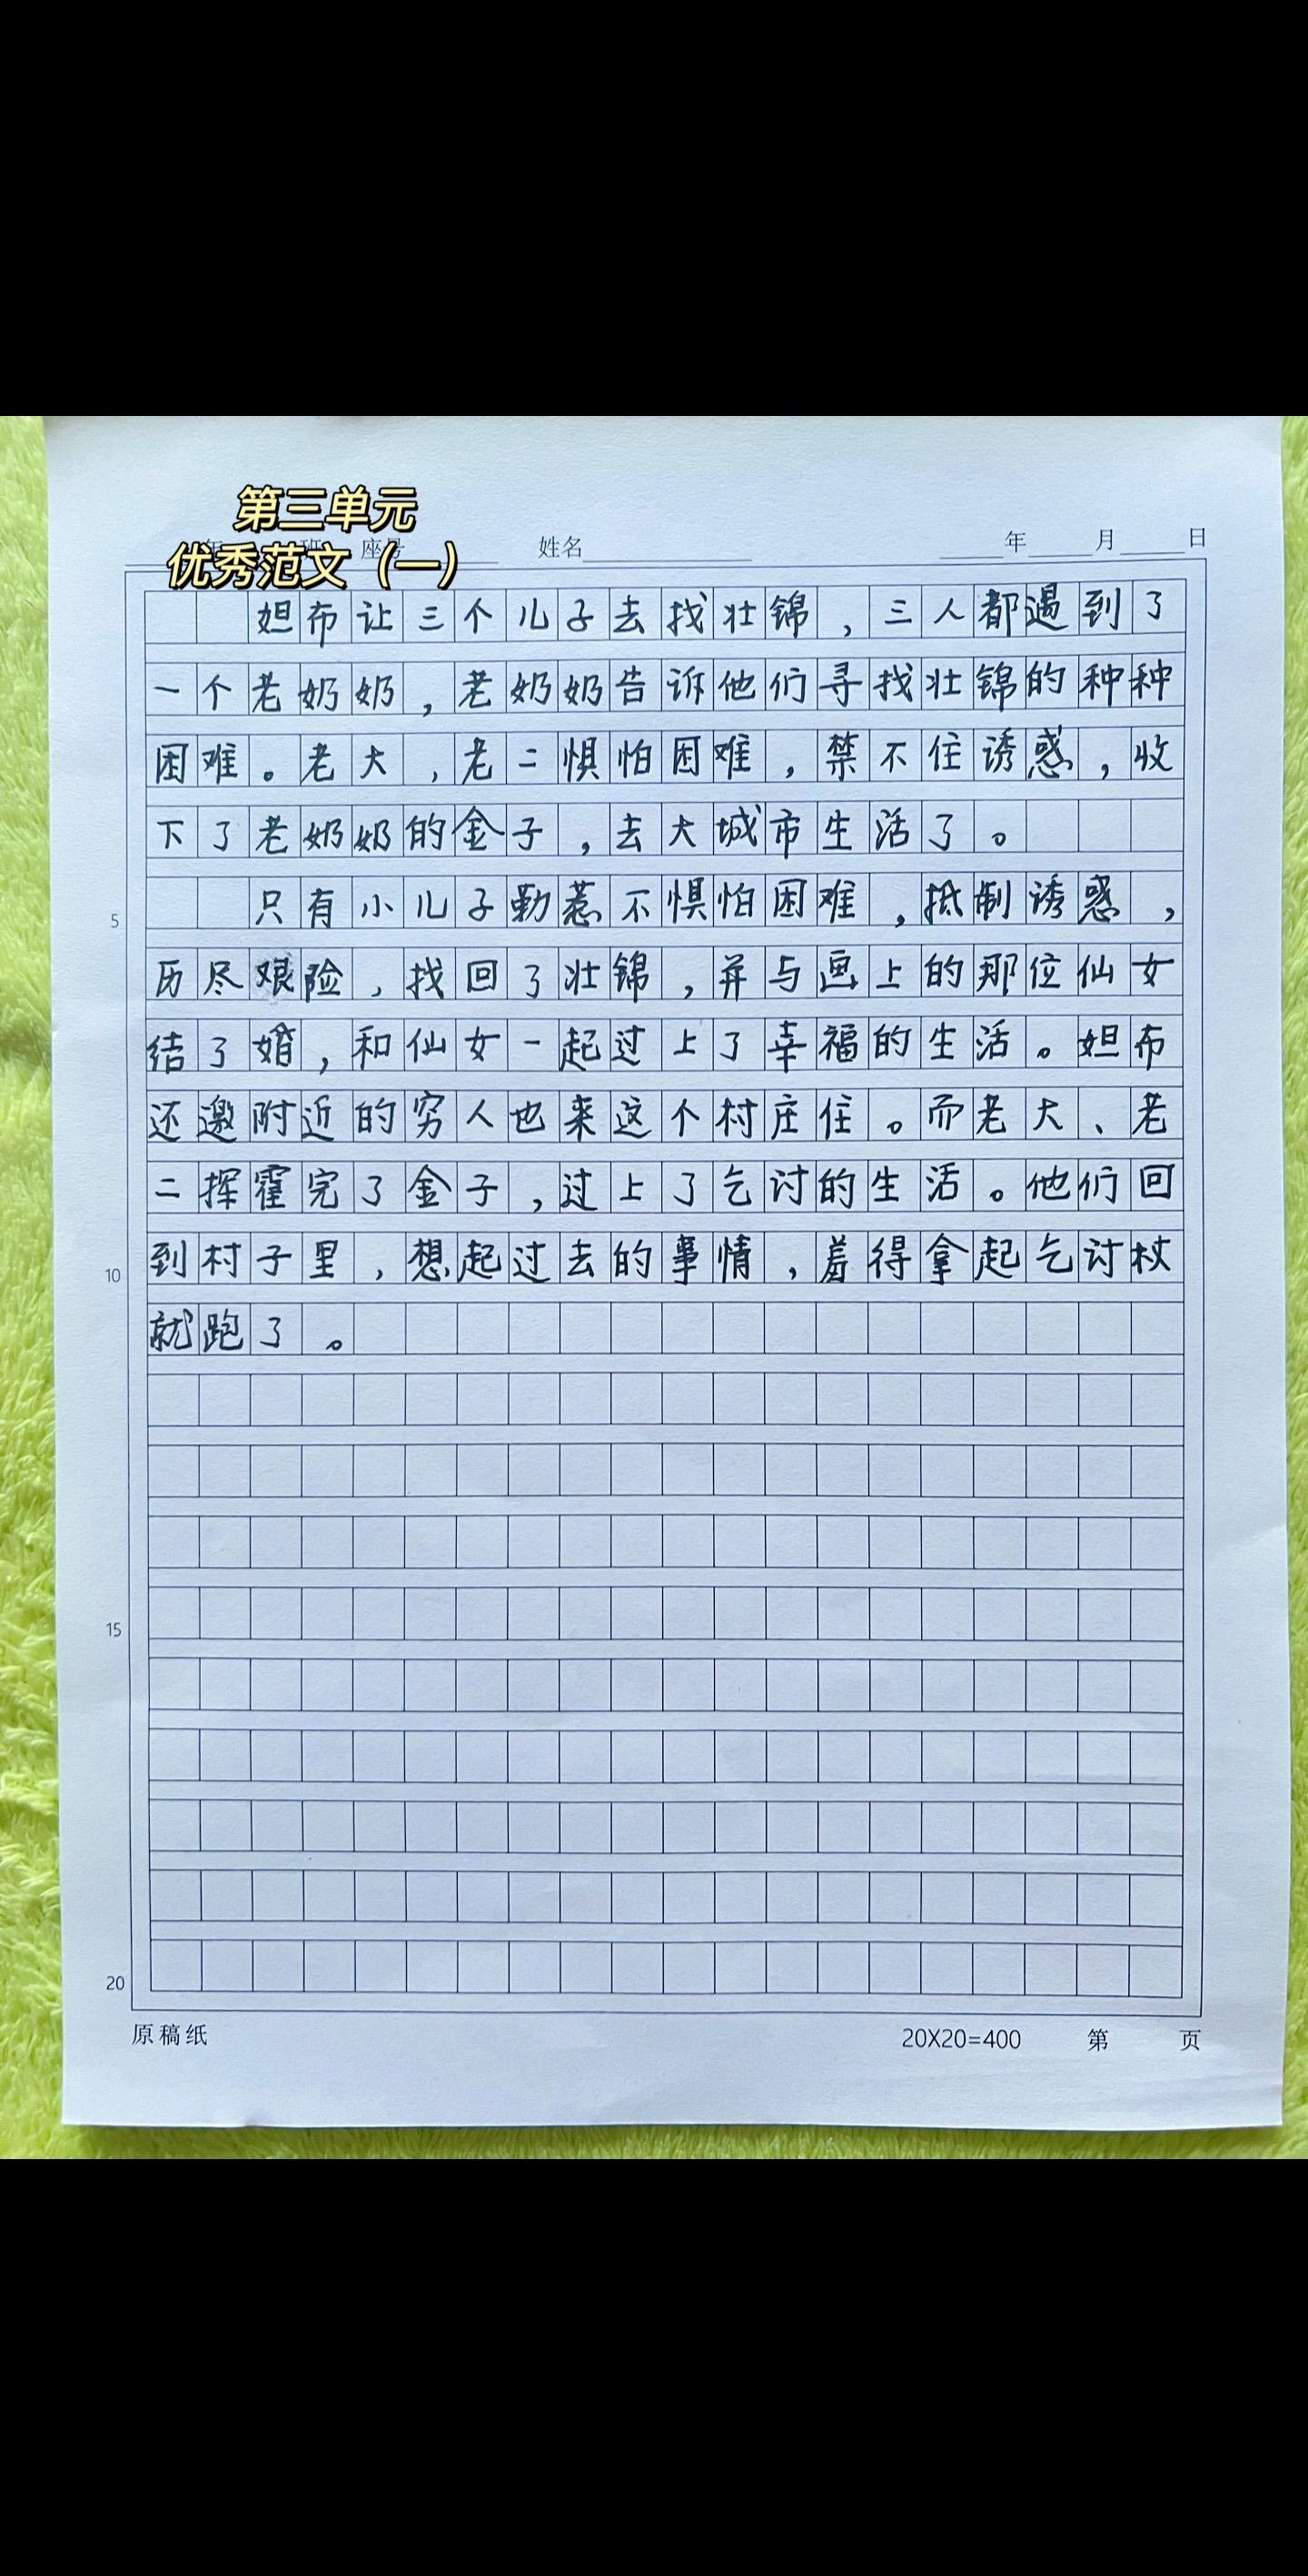 第三单元
优秀范文（一）
座号 姓名 年 月 日
妲布让三个儿子去找壮锦，三人都遇到了
一个老奶奶，老奶奶告诉他们寻找壮锦的种种
困难。老大，老二惧怕困难，禁不住诱惑，收
下了老奶奶的金子，去大城市生活了。
只有小儿子勒惹不惧怕困难，抵制诱惑，
5
历尽艰险，找回了壮锦，并与画上的那位仙女
结了婚，和仙女一起过上了幸福的生活。妲布
还邀附近的穷人也来这个村庄住。而老大、老
二挥霍完了金子，过上了乞讨的生活。他们回
到村子里，想起过去的事情，羞得拿起乞讨杖
10
就跑了。
15
20
原稿纸 20X20=400 第 页